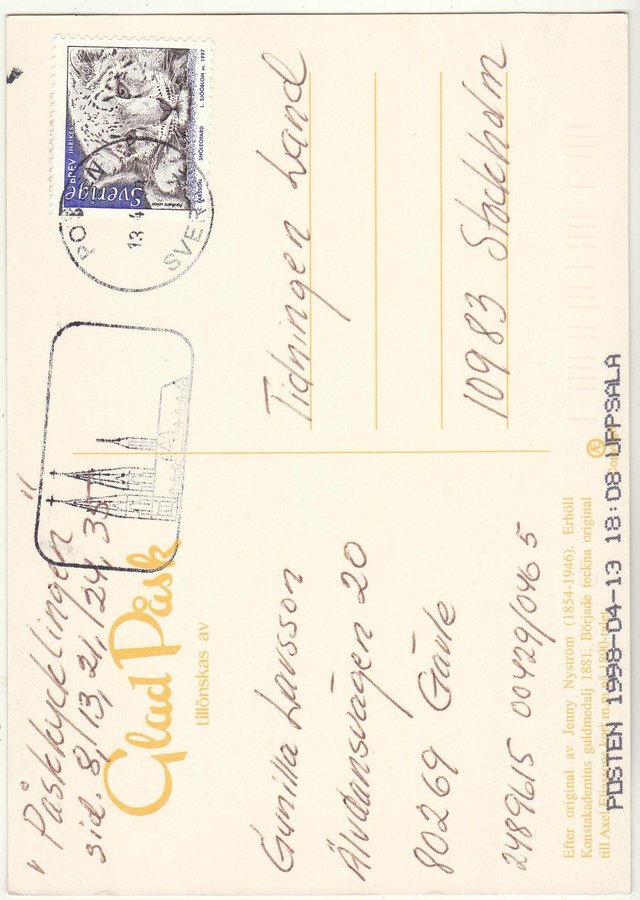 "Påskkycklingen"
sid. 8, 13, 21, 24, 35
Glad Påsk
tillönskas av
Gunilla Larsson
Älvdansvägen 20
80269 Gävle
2489615 00429/0465
Efter original av Jenny Nyström (1854-1946). Erhöll
Konstakademins guldmedalj 1881. Började teckna original
POSTEN 1998-04-13 18:08 UPPSALA
Sverige
BREV INRIKES
Panthera uncia
SNÖLEOPARD
L. SJÖÖBLOM sc. 1997
13 4
Tidningen Land
10983 Stockholm